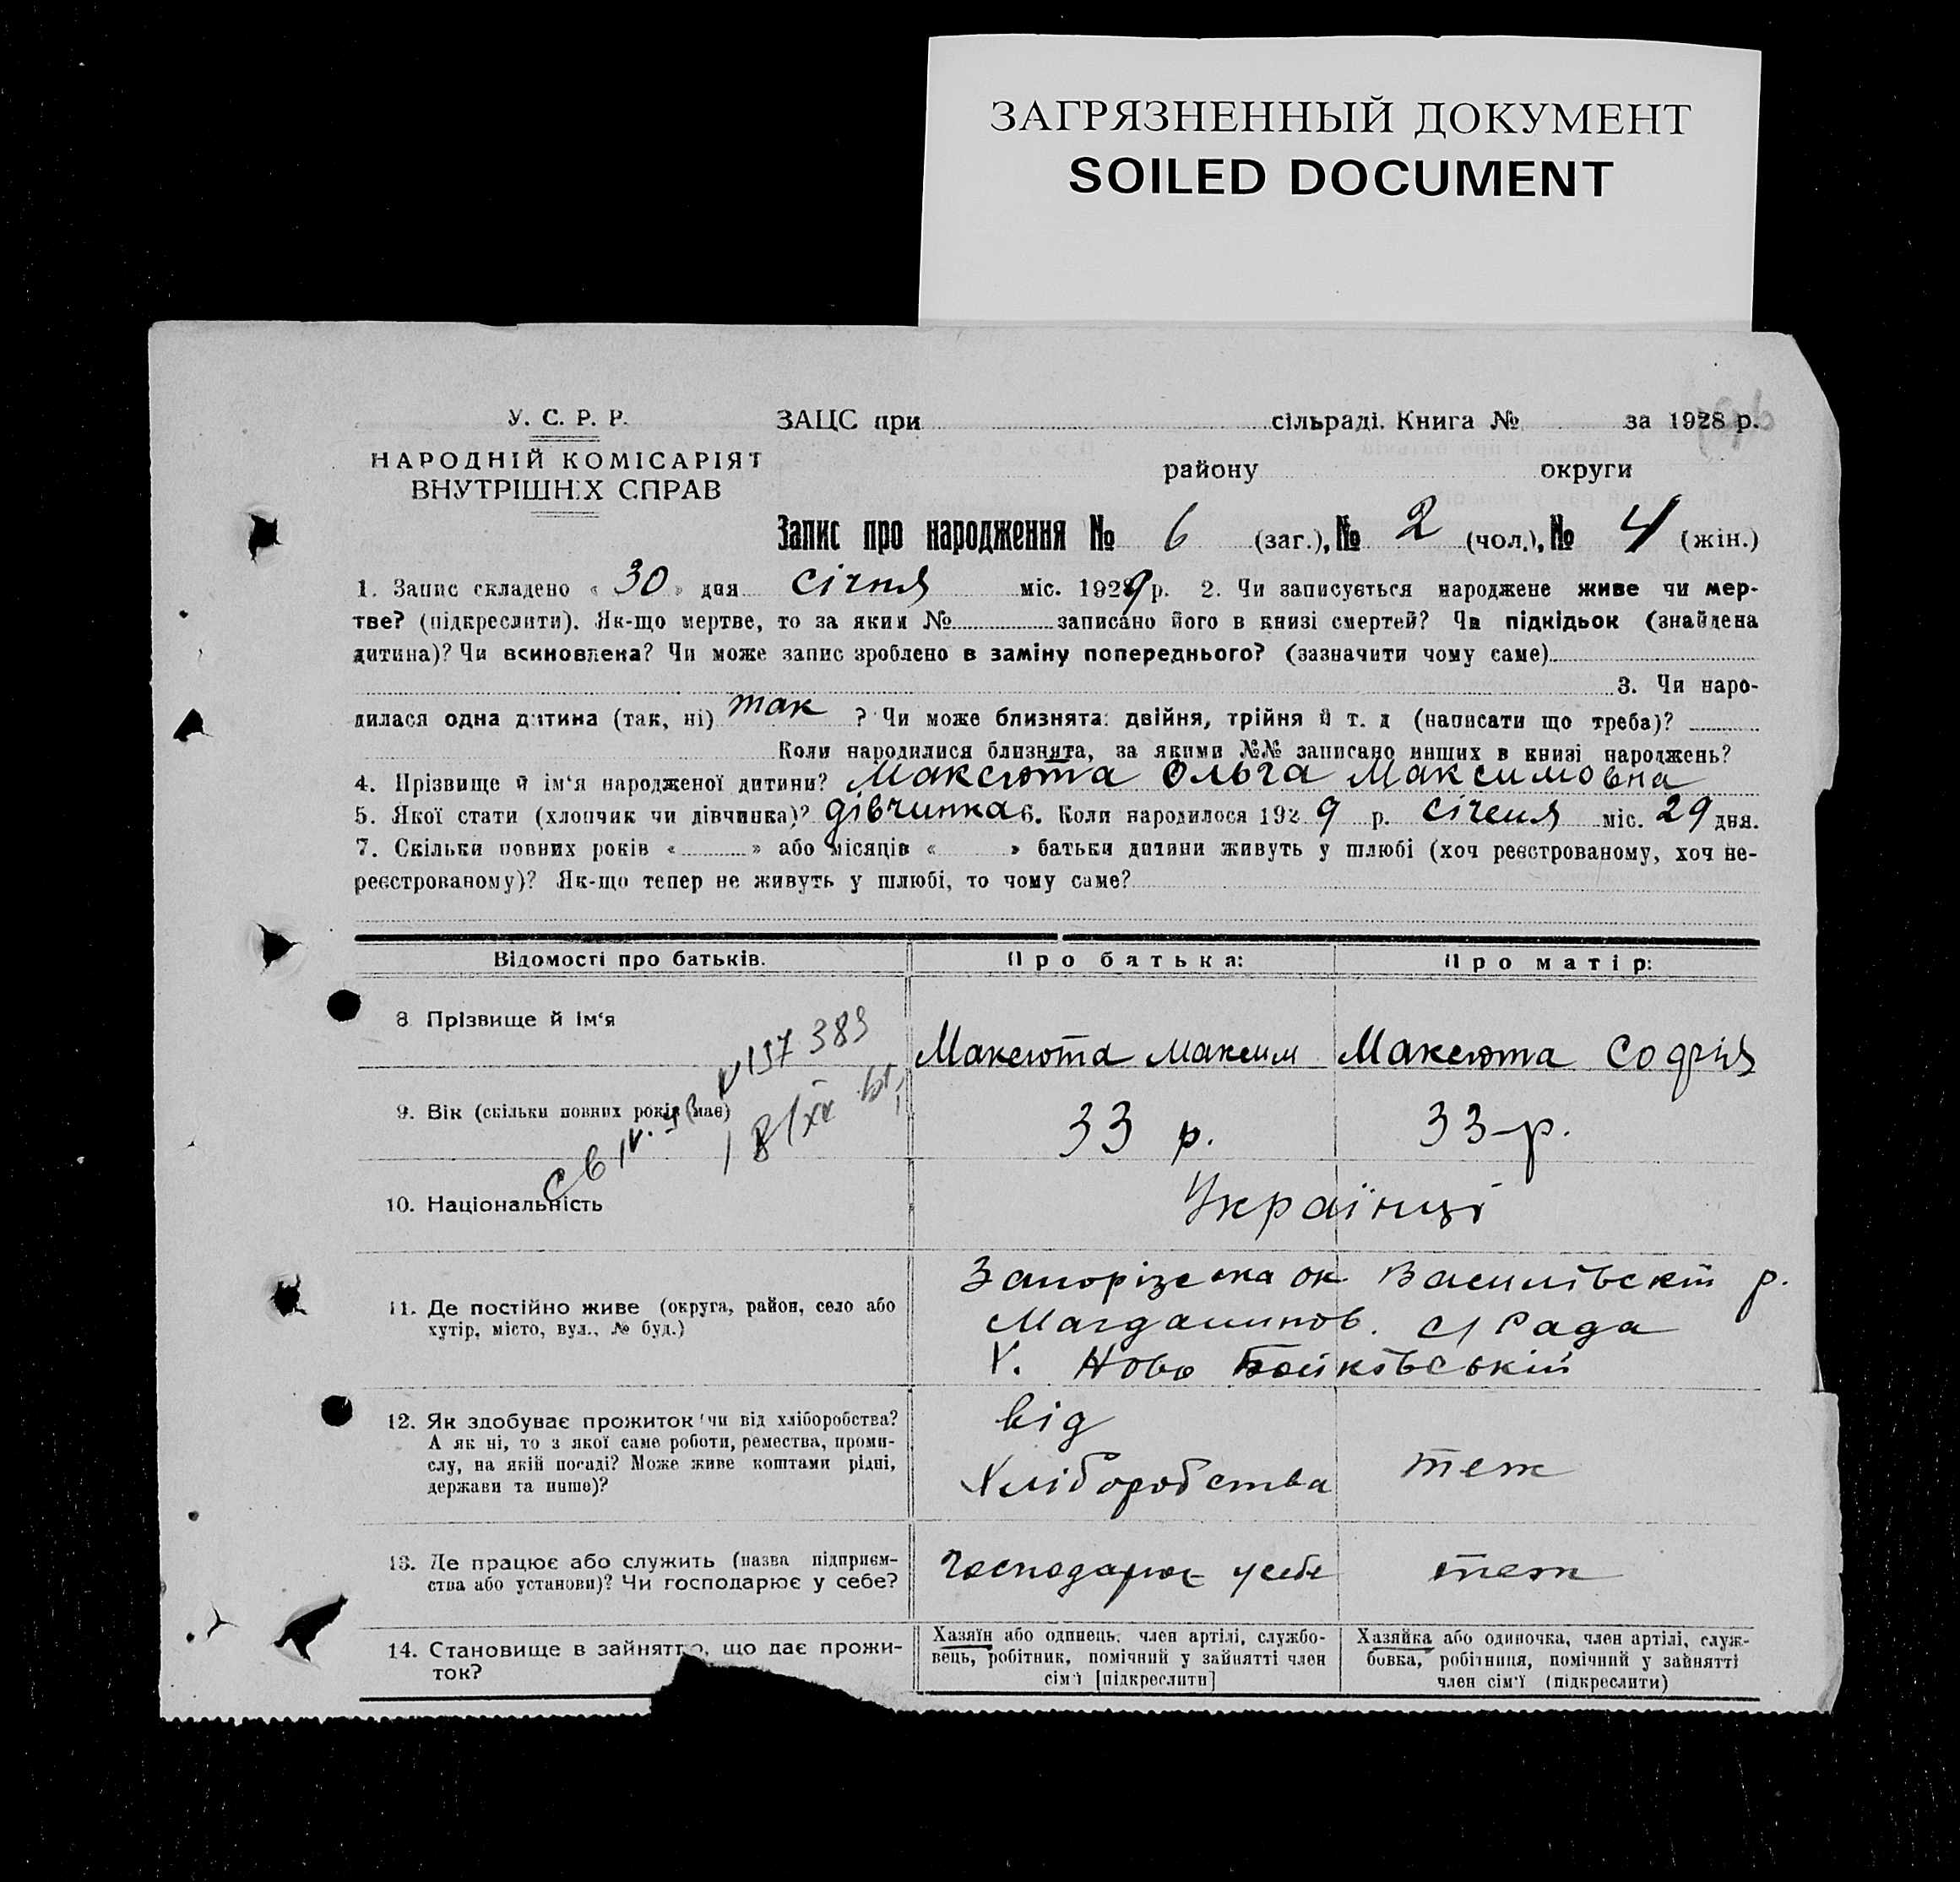 ЗАГРЯЗНЕННЫЙ ДОКУМЕНТ
SOILED DOCUMENT
У. С. Р. Р.
НАРОДНІЙ КОМІСАРІЯТ
ВНУТРІШНІХ СПРАВ
ЗАЦС при сільраді. Книга № за 1928 р.
району округи
Запис про народження № 6 (заг.), № 2 (чол.), № 4 (жін.)
1. Запис складено « 30 » дня січня міс. 1929 р. 2. Чи записується народжене живе чи мер-
тве? (підкреслити). Як-що мертве, то за яким № записано його в книзі смертей? Чи підкідьок (знайдена
дитина)? Чи всиновлена? Чи може запис зроблено в заміну попереднього? (зазначити чому саме)
3. Чи наро-
дилася одна дитина (так, ні) так ? Чи може близнята: двійня, трійня й т. д (написати що треба)?
Коли народилися близнята, за якими №№ записано инших в книзі народжень?
4. Прізвище й ім'я народженої дитини? Максюта Ольга Максимовна
5. Якої статі (хлопчик чи дівчинка)? дівчинка 6. Коли народилося 1929 р. січеня міс. 29 дня.
7. Скільки повних років « » або місяців « » батьки дитини живуть у шлюбі (хоч реєстрованому, хоч не-
реєстрованому)? Як-що тепер не живуть у шлюбі, то чому саме?
Відомості про батьків. Про батька: Про матір:
8 Прізвище й ім'я Максюта Максим Максюта Софія
№137383
9. Вік (скільки повних років має) 33 р. 33 р.
10. Національність Українці
11. Де постійно живе (округа, район, село або
хутір, місто, вул., № буд.)
Запорізська ок. Василівскій р.
Магдалинов. с/Рада
Х. Ново Бойківській
12. Як здобуває прожиток чи від хліборобства?
А як ні, то з якої саме роботи, ремества, проми-
слу, на якій посаді? Може живе коштами рідні,
держави та инше)?
від
Хліборобства теж
13. Де працює або служить (назва підприєм-
ства або установи)? Чи господарює у себе?
Господарює у себе теж
14. Становище в зайняттю, що дає прожи-
ток?
Хазяїн або одинець, член артілі, службо-
вець, робітник, помічний у зайнятті член
сім'ї [підкреслити]
Хазяйка або одиночка, член артілі, служ-
бовка, робітниця, помічний у зайнятті
член сім'ї (підкреслити)